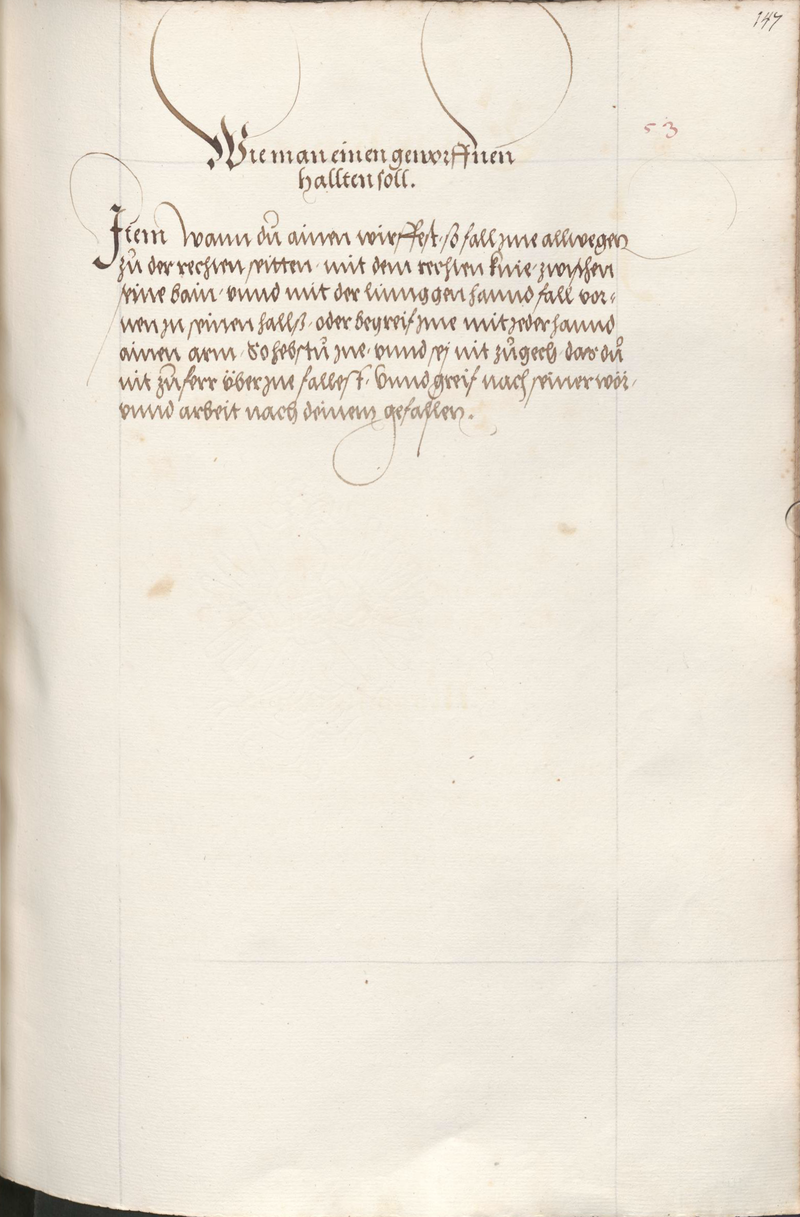 147
53
Wie man einen geworffnen
hallten soll.
Item Wann dů ainen wirffest, so fall jne allwegen
zů der rechten seitten, mit dem rechten knie, zwischen
seine bain, vnnd mit der linnggen hannd fall vor-
nen jn seinen hallß, oder begreif jne mit jeder hannd
ainen arm, So hebstů jne, vnnd sej nit zůgech, das dů
nit zůferr über jne fallest, Vnnd greif nach seiner wör,
vnnd arbeit nach deinem gefallen.